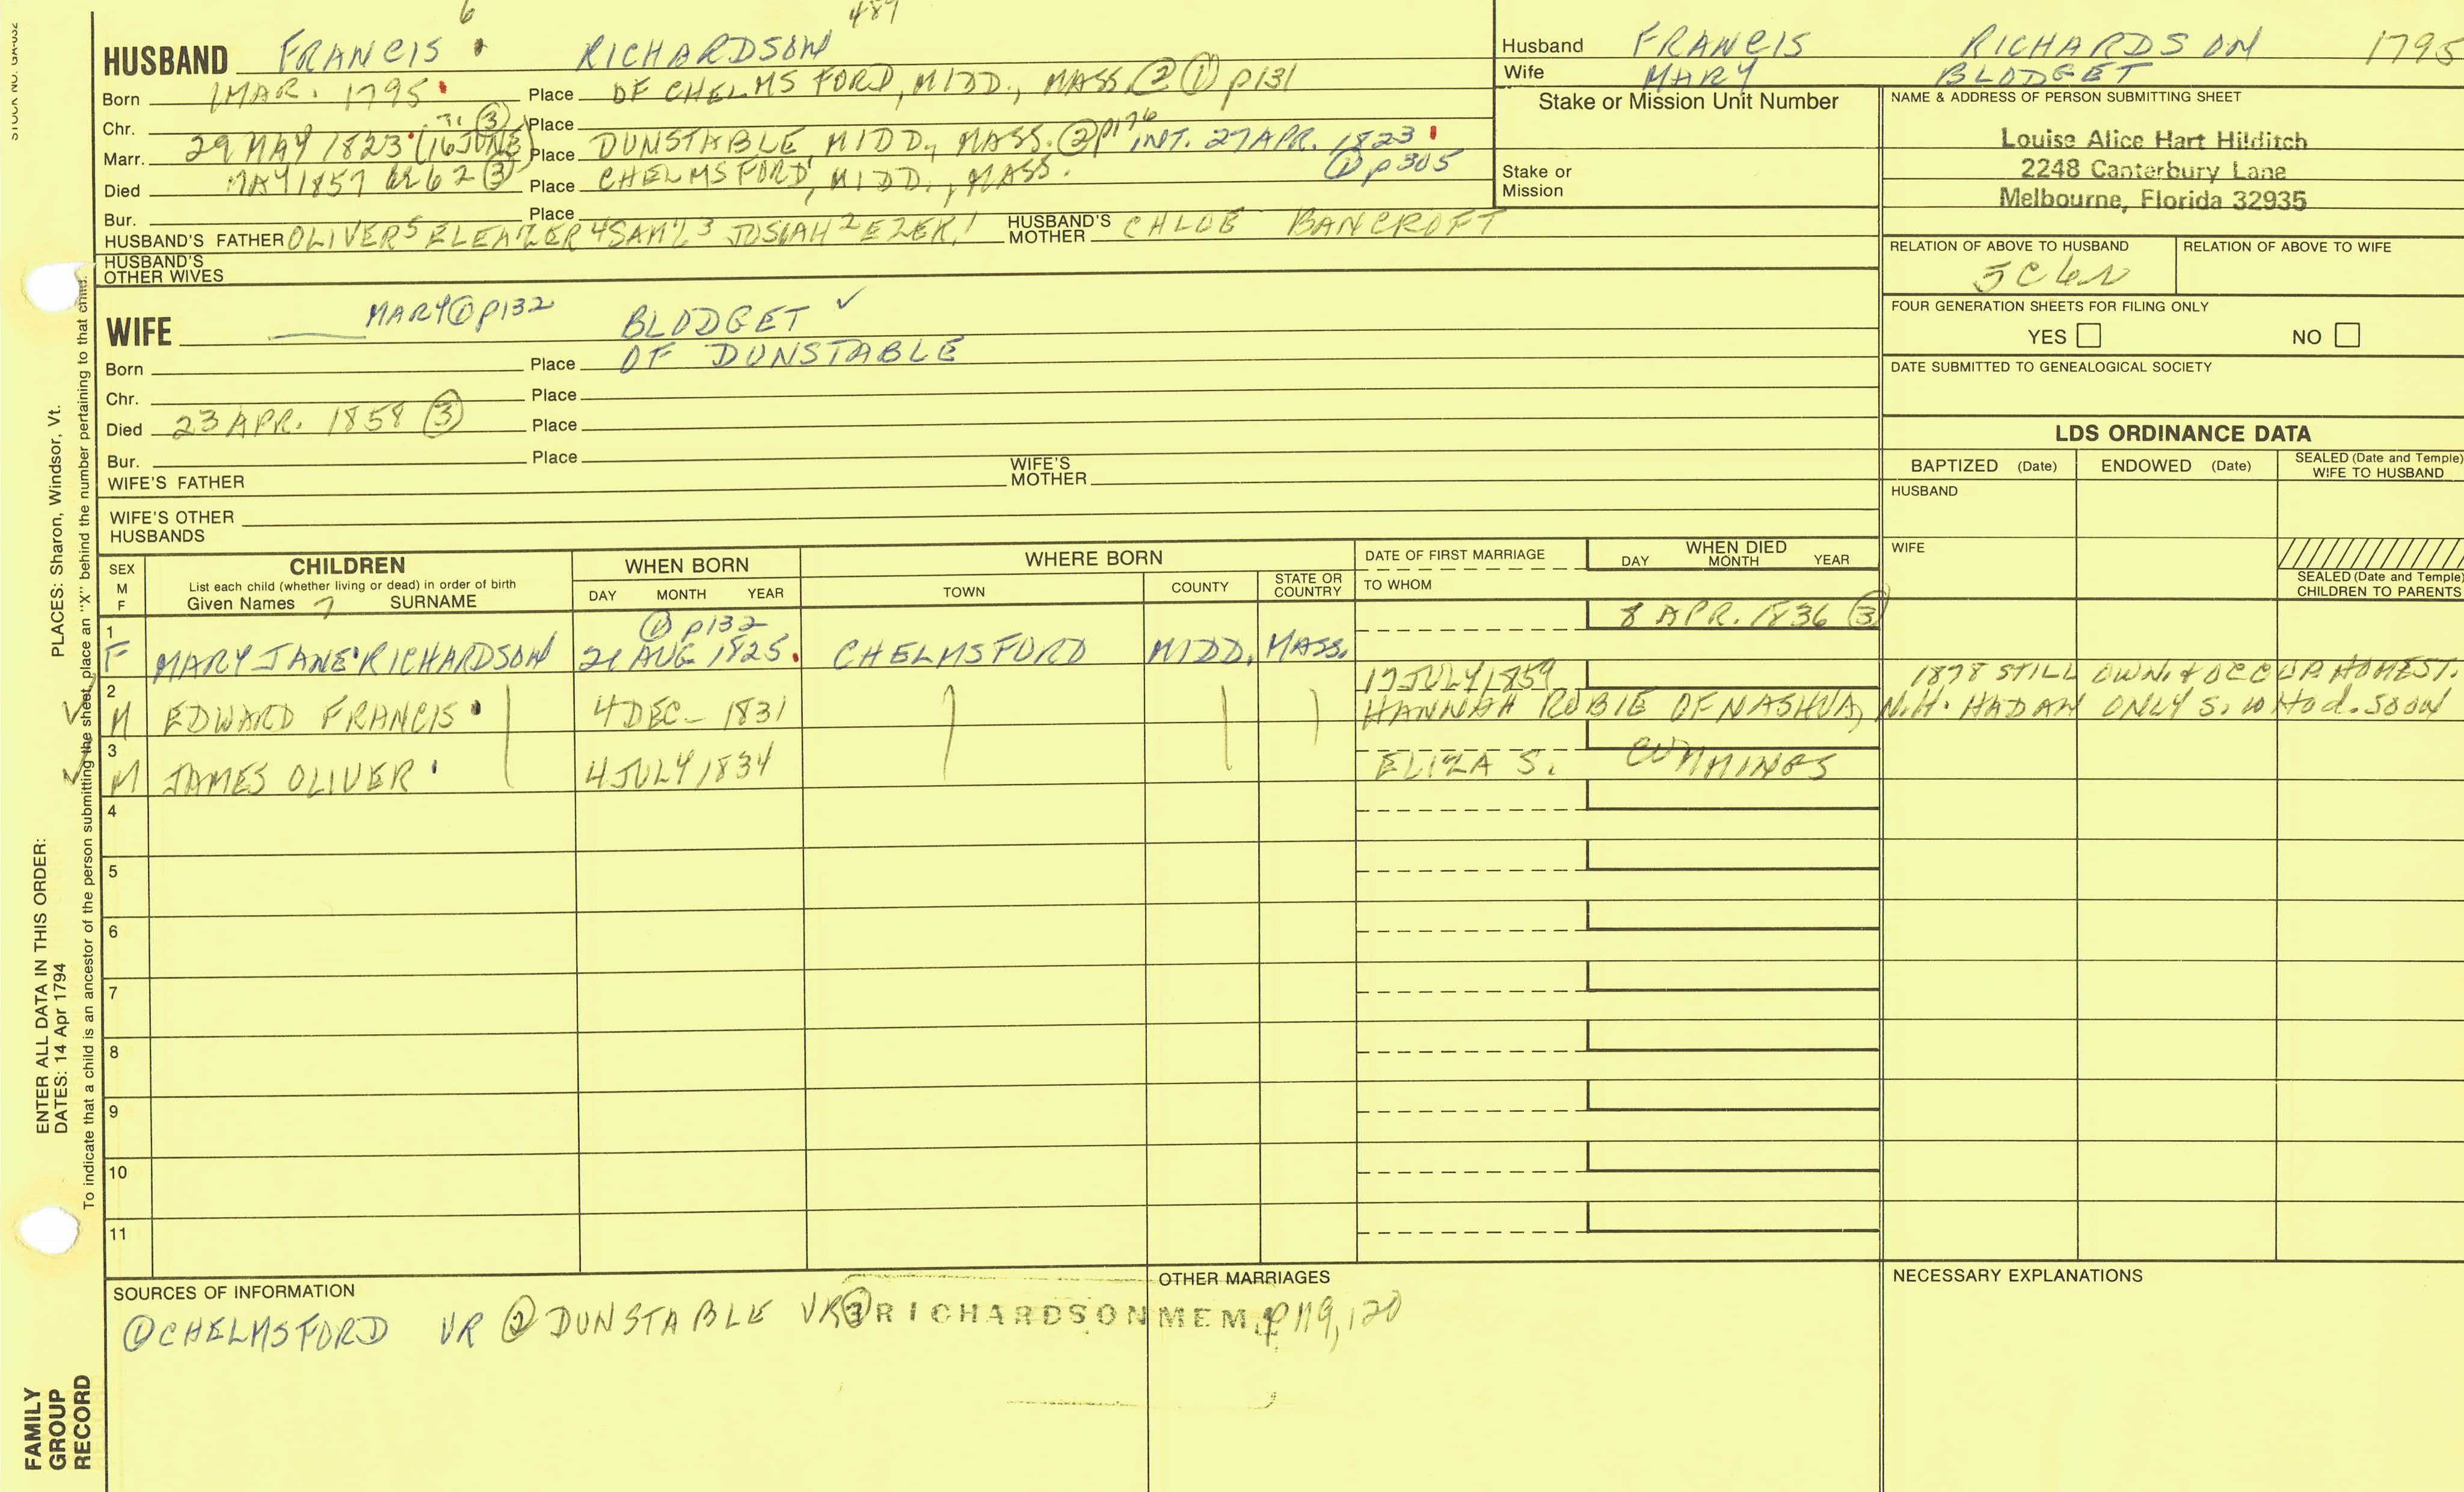 6 489
HUSBAND FRANCIS RICHARDSON
Born 1 MAR. 1795 Place OF CHELMSFORD, MIDD., MASS ② ① p131
Chr. Place
Marr. 29 MAY 1823 (16 JUNE) ③ Place DUNSTABLE, MIDD., MASS. ② p176 INT. 27 APR. 1823 ① p305
Died MAY 1857 62 ③ Place CHELMSFORD, MIDD., MASS.
Bur. Place
HUSBAND'S FATHER OLIVER5 ELEAZER 4 SAM'L 3 JOSIAH 2 EZEK.1 HUSBAND'S MOTHER CHLOE BANCROFT
HUSBAND'S OTHER WIVES
WIFE MARY ① p132 BLODGET ✓
Born Place OF DUNSTABLE
Chr. Place
Died 23 APR. 1858 ③ Place
Bur. Place
WIFE'S FATHER WIFE'S MOTHER
WIFE'S OTHER HUSBANDS
Husband FRANCIS RICHARDSON 1795
Wife MARY BLODGET
Stake or Mission Unit Number
Stake or
Mission
NAME & ADDRESS OF PERSON SUBMITTING SHEET
Louise Alice Hart Hilditch
2248 Canterbury Lane
Melbourne, Florida 32935
RELATION OF ABOVE TO HUSBAND RELATION OF ABOVE TO WIFE
5C6R
FOUR GENERATION SHEETS FOR FILING ONLY
YES NO
DATE SUBMITTED TO GENEALOGICAL SOCIETY
LDS ORDINANCE DATA
BAPTIZED (Date) ENDOWED (Date) SEALED (Date and Temple) WIFE TO HUSBAND
HUSBAND
WIFE
SEALED (Date and Temple) CHILDREN TO PARENTS
SEX M F CHILDREN WHEN BORN WHERE BORN DATE OF FIRST MARRIAGE WHEN DIED
List each child (whether living or dead) in order of birth
Given Names 7 SURNAME DAY MONTH YEAR TOWN COUNTY STATE OR COUNTRY TO WHOM DAY MONTH YEAR
① p132 8 APR. 1836 ③
1 F MARY JANE RICHARDSON 21 AUG 1825 CHELMSFORD MIDD. MASS.
17 JULY 1859 1878 STILL OWN. & OCCUP HOMEST.
2 M EDWARD FRANCIS 4 DEC- 1831 HANNAH ROBIE OF NASHUA, N.H. HAD AN ONLY S. WHO d. SOON
3 M JAMES OLIVER 4 JULY 1834 ELIZA S. CUMMINGS
4
5
6
7
8
9
10
11
SOURCES OF INFORMATION
① CHELMSFORD VR ② DUNSTABLE VR ③ RICHARDSON MEM. p119,120
OTHER MARRIAGES
NECESSARY EXPLANATIONS
STOCK NO. GA-032
PLACES: Sharon, Windsor, Vt.
To indicate that a child is an ancestor of the person submitting the sheet, place an "X" behind the number pertaining to that child.
ENTER ALL DATA IN THIS ORDER:
DATES: 14 Apr 1794
FAMILY
GROUP
RECORD